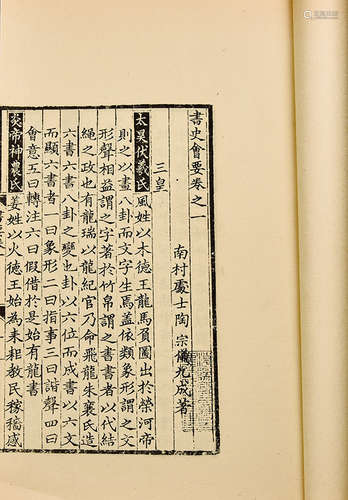 書史會要卷之一
南村處士陶宗儀九成著
三皇
太昊伏羲氏風姓以木德王龍馬負圖出於榮河帝
則之以畫八卦而文字生焉蓋依類象形謂之文
形聲相益謂之字著於竹帛謂之書書者以代結
繩之政也有龍瑞以龍紀官乃命飛龍朱襄氏造
六書六書八卦之變也卦以六位而成書以六文
而顯六書者一曰象形二曰指事三曰諧聲四曰
會意五曰轉注六曰假借於是始有龍書
炎帝神農氏姜姓以火德王始為耒耜教民稼穡感